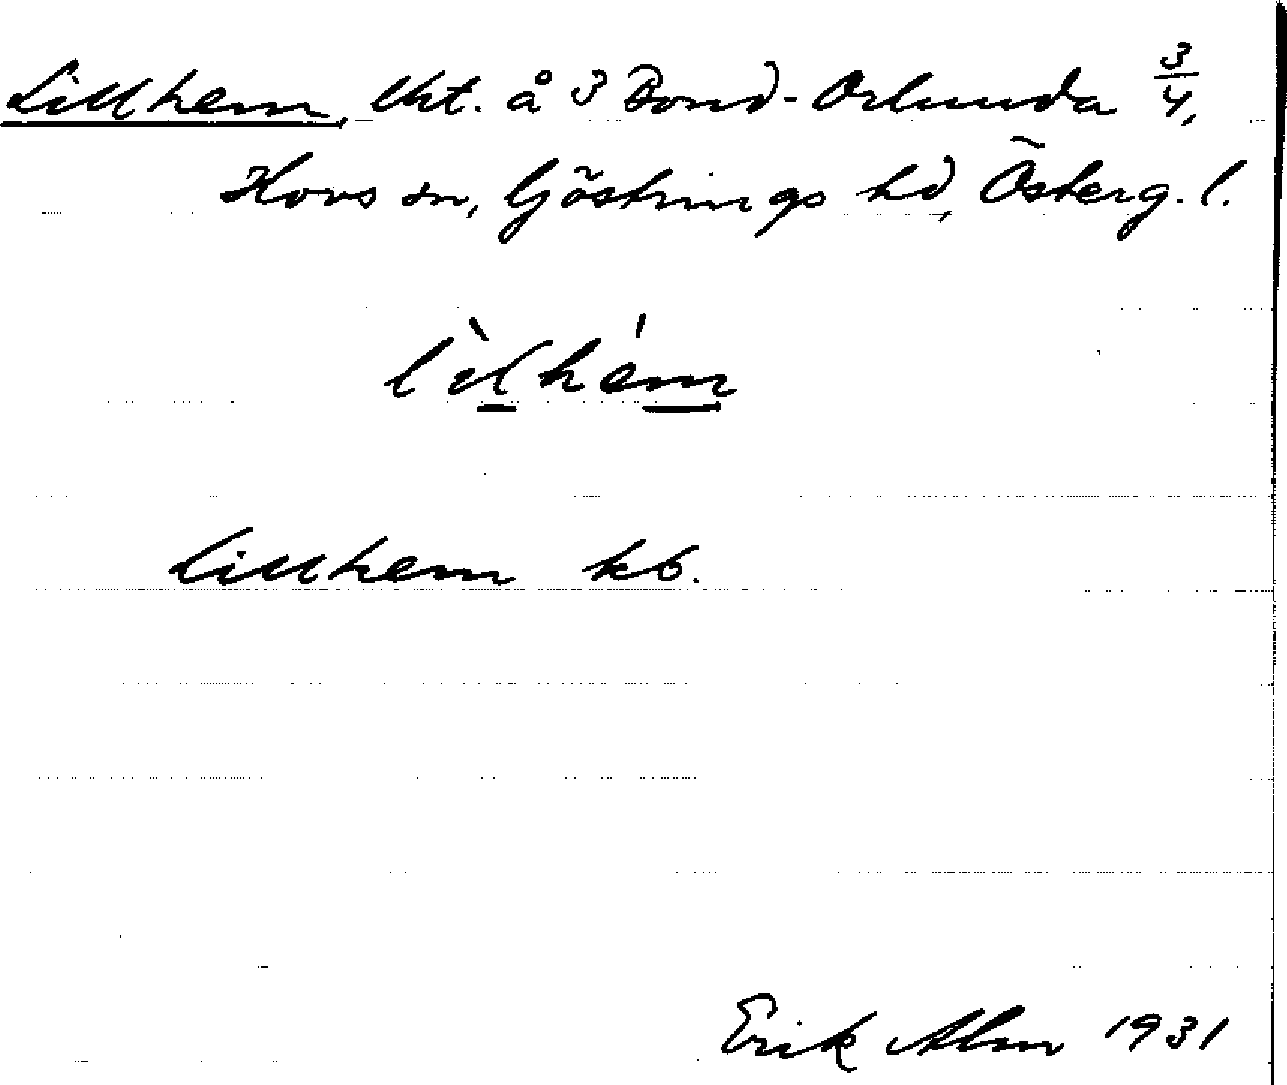 Lillhem, lht. å 3 Bond-Orlunda 3/4,
Hovs sn, Göstrings hd, Österg. l.
lìlhém
Lillhem kb.
Erik Alm 1931